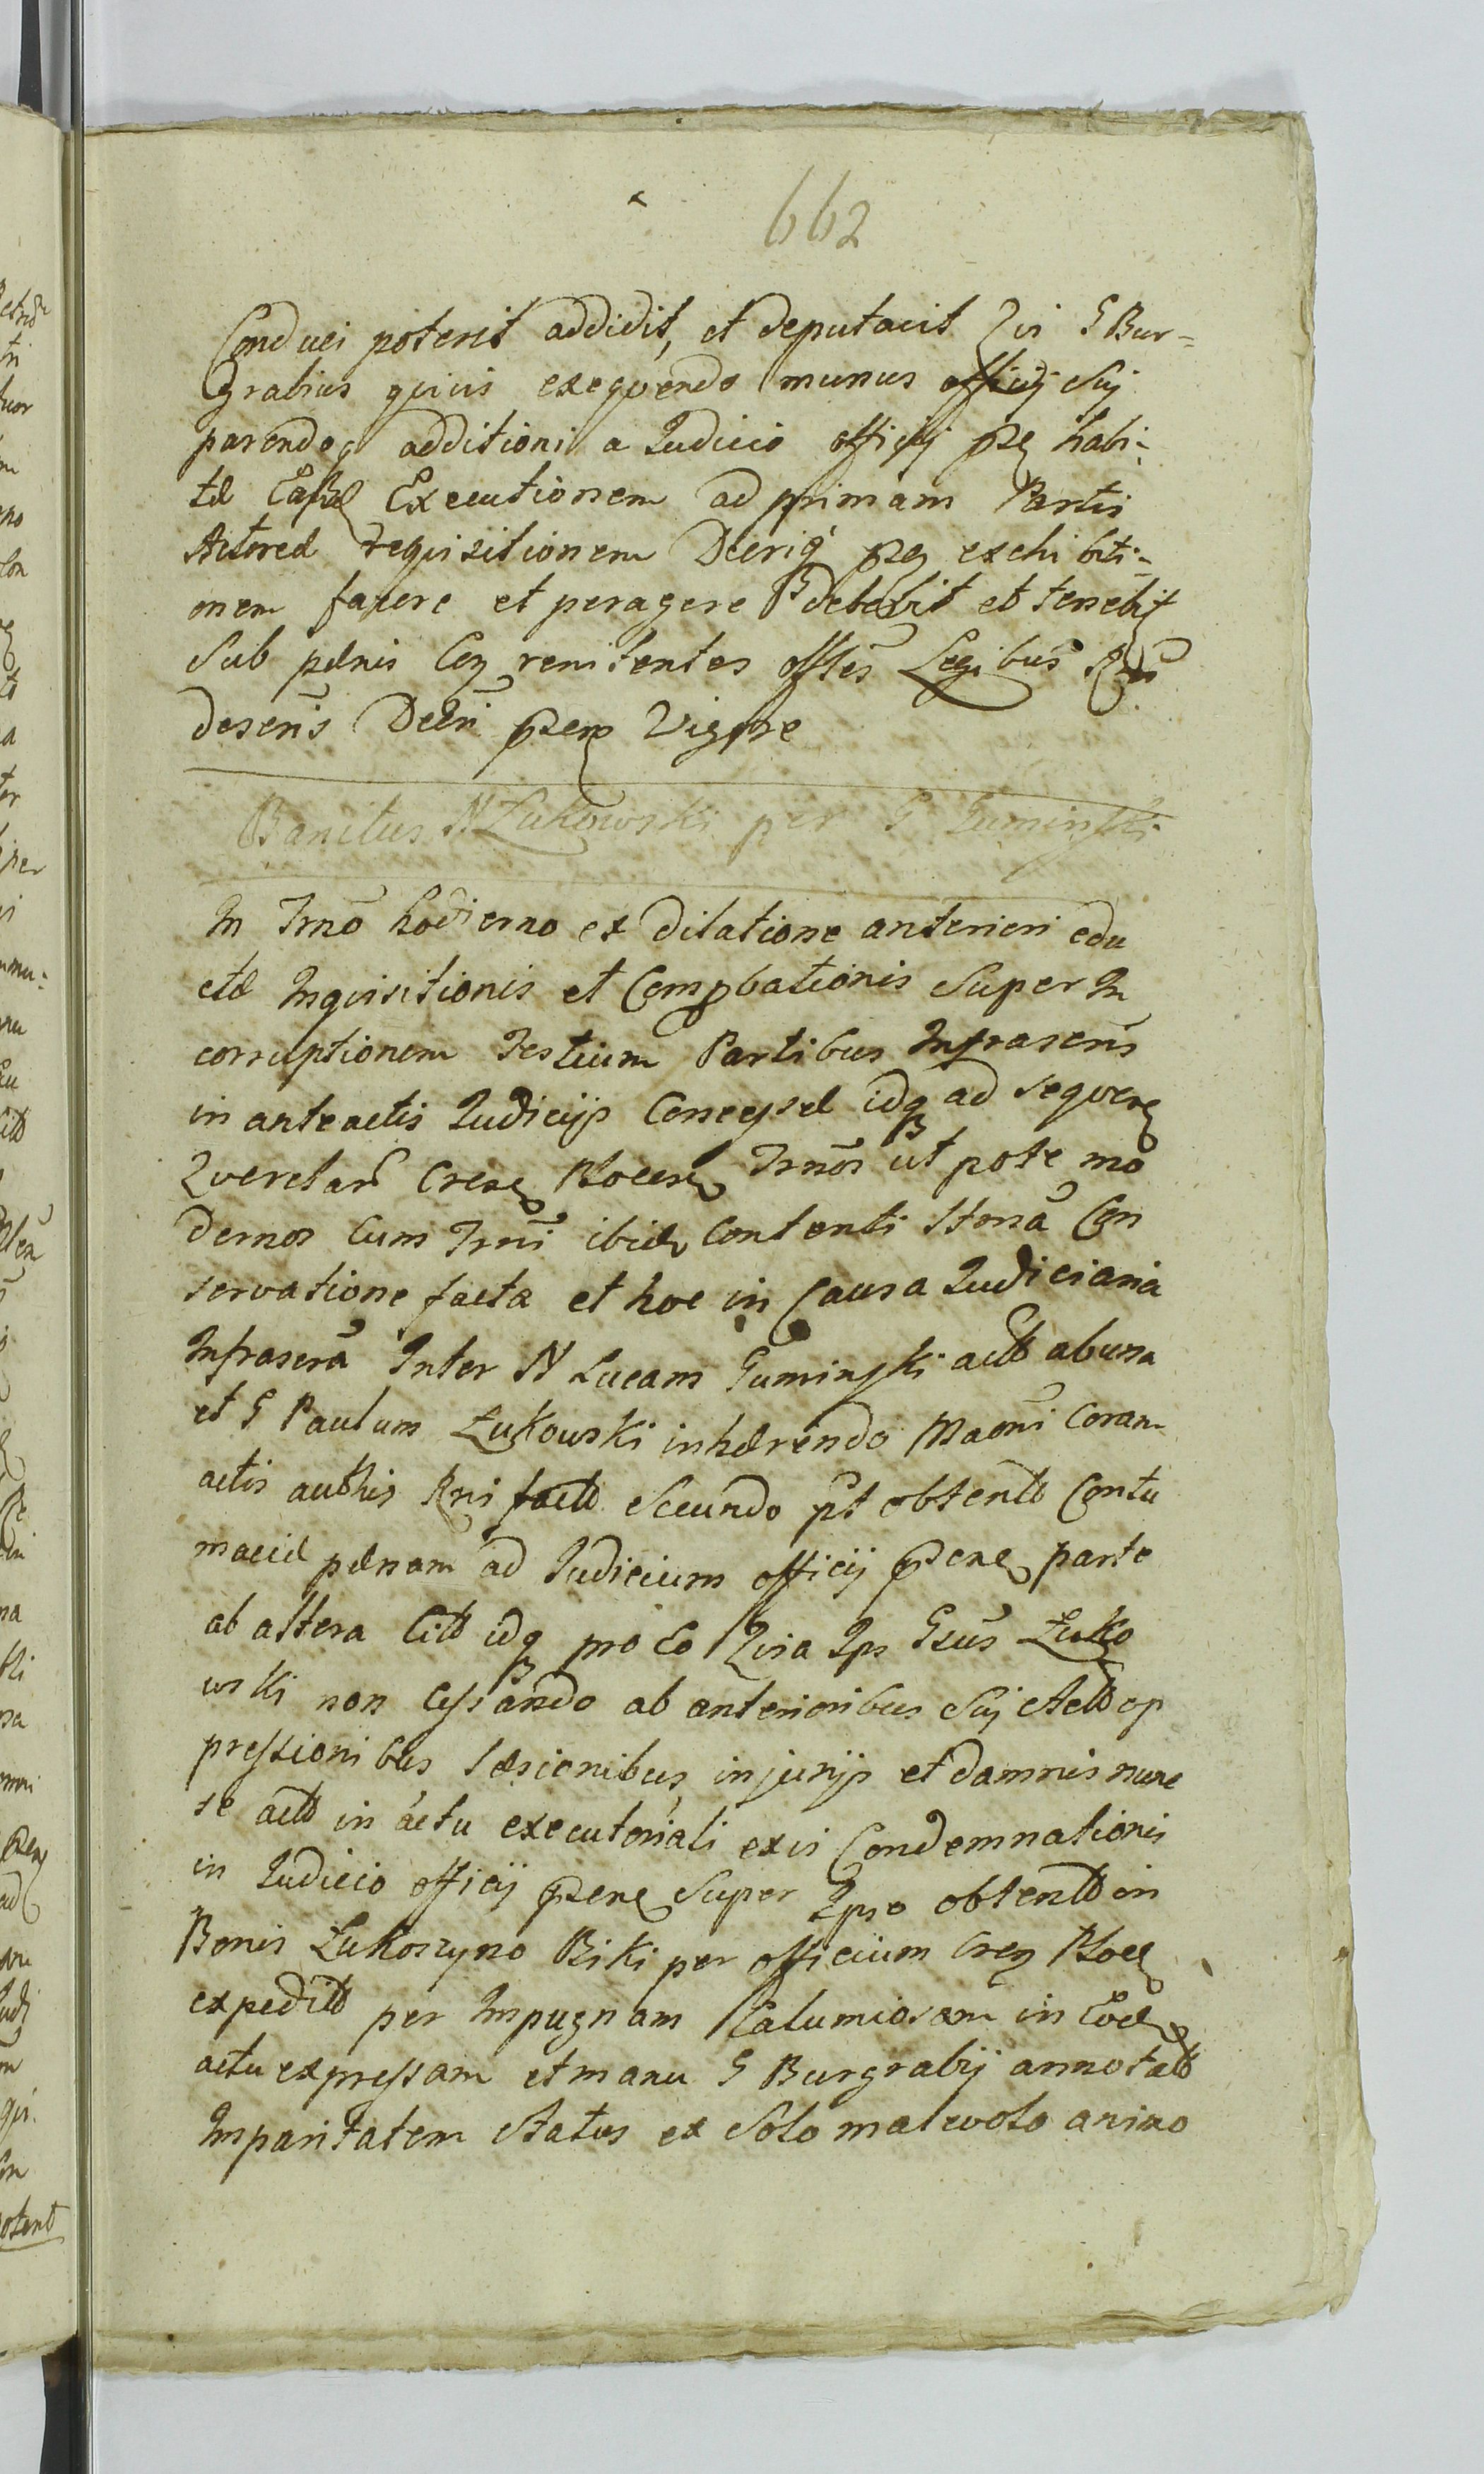 662
Conduci poterit addidit, et deputavit Qui G Bur-
Grabius quivis exequendo munus officij Suj
parendoq additioni a Iudicio officij pꝛꝫ habi-
tæ Eaſdꝫ Executionem ad primam Partis
Actoreæ requisitionem Decriq pꝛꝫ exhibiti-
onem facere et peragere debebit et tenebit
Sub pænis Con renitentes offles Legibus Rni
descris Decri pꝛꝫen Vigore
Banitus N Łukowski per G Guminſki
In Trno hodierno ex Dilatione anteriori edu
ctæ Inquisitionis et Compbationis Super In
corruptionem Testium Partibus Infrascris
in anteactis Iudicijs Concessæ idq ad sequen
Querelar Cren Plocen Trnos ut pote mo
dernos Cum Trni ibidꝫ Contenti Itoria Con
servatione facta et hoc in Causa Iudiciaria
Infrascra Inter N Lucam Guminſki act ab una
et G Paulum Łukowski inhærendo Maoni Coram
actis authis Rni fact Secundo pt obtent Contu
maciæ pænam ad Iudicium officij pꝛꝫen parte
ab altera Cit idq pro Eo Quia Ips Gsus Łuko
wski non Ceſsando ab anterioribus Suj Act op
preſsionibus læsionibus, injurijs et damnis nunc
se act in actu executoriali exis Condemnationis
in Iudicio officij pꝛꝫen Super Ipso obtent in
Bonis Łukoszyno Biki per officium Cren Plocꝫ
expedit per Impugnam Calumiosam in Eodꝫ
actu expreſsam et manu G Burgrabij annotat
Imparitatem Status ex Solo malevolo animo